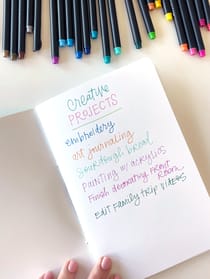 Creative
PROJECTS
embroidery
art journaling
Sourdough bread
Painting w/ acrylics
Finish decorating front
room
EDIT FAMILY TRIP VIDEOS